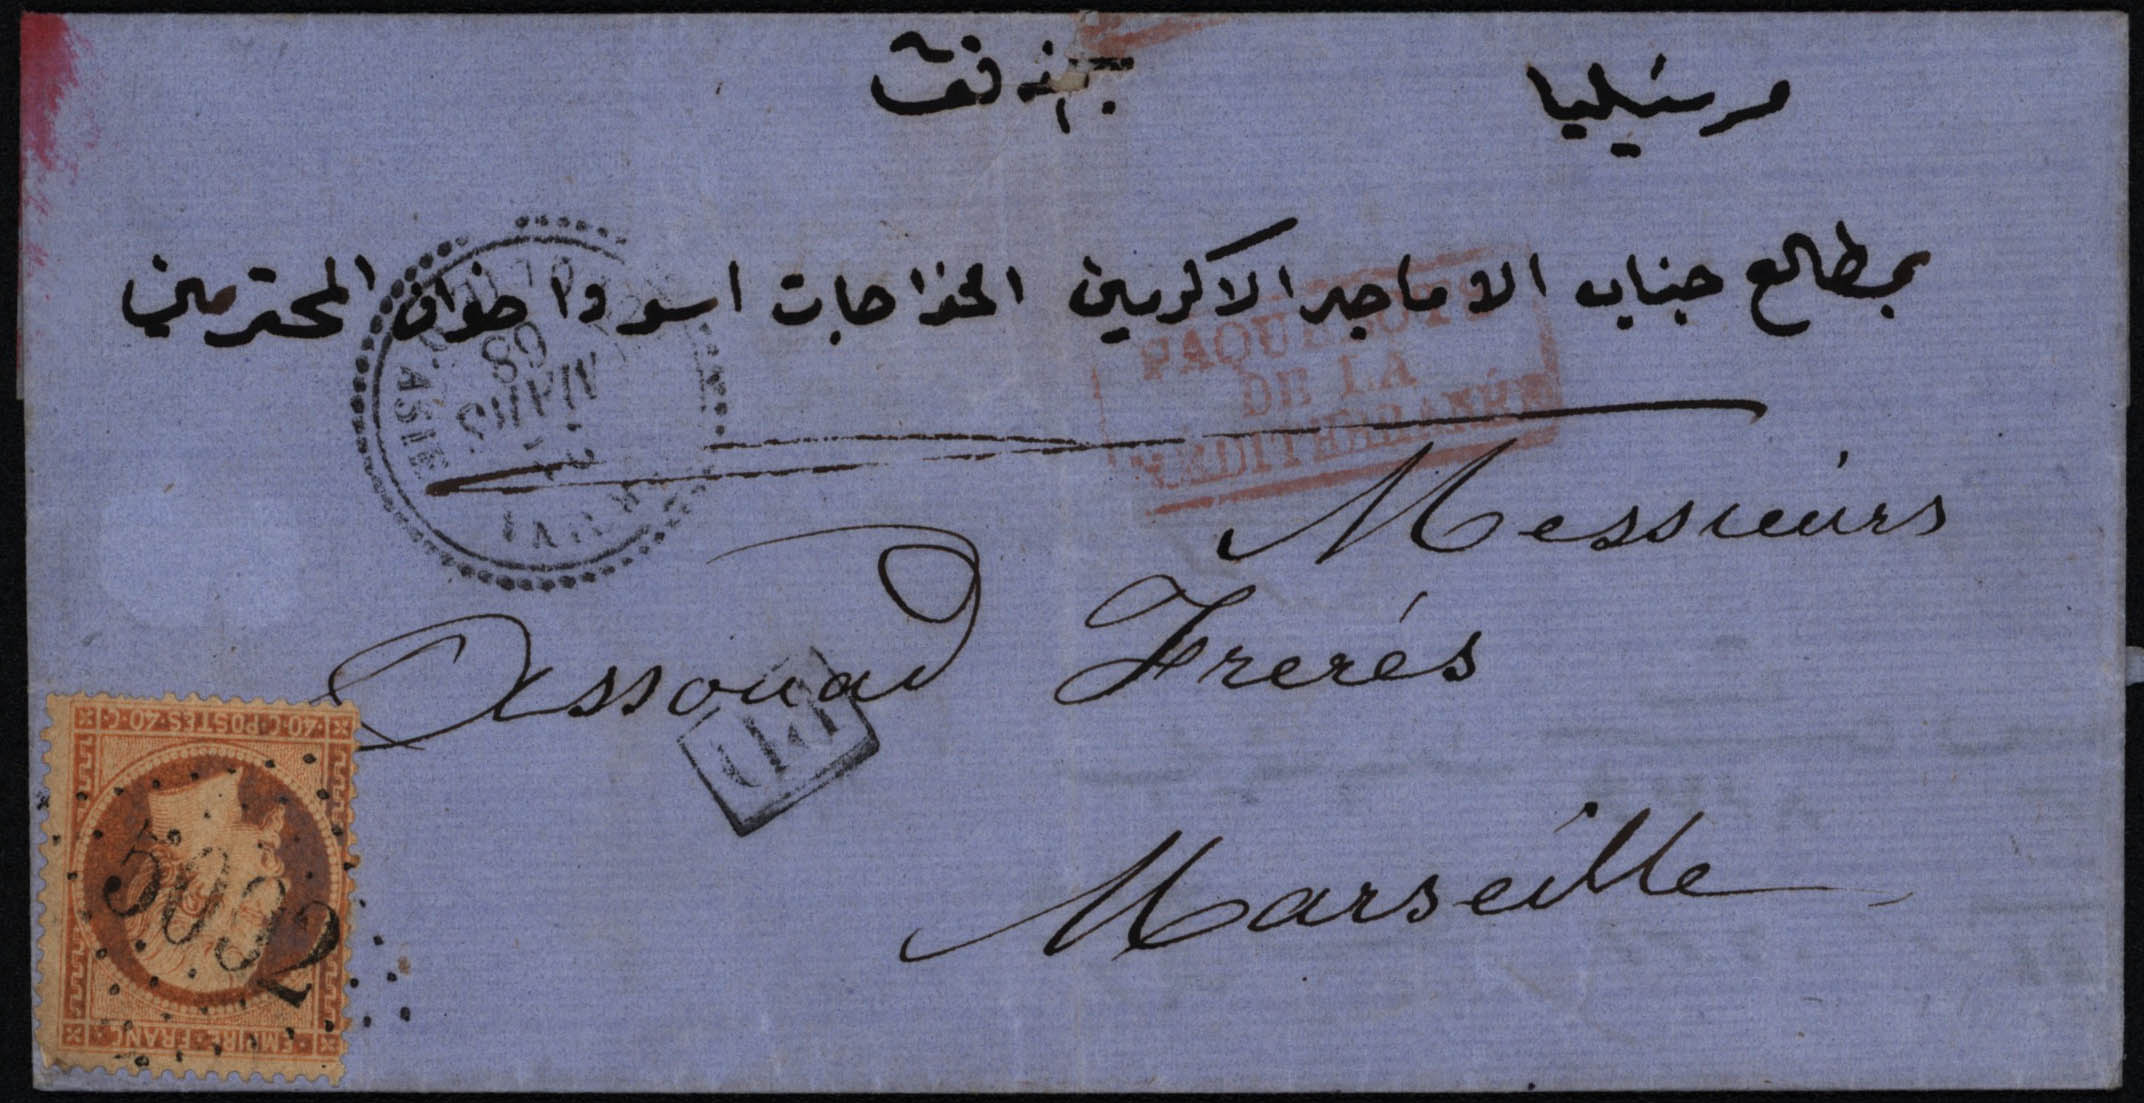 مرسيليا
بمطالع جناب الاماجد الاكرمين الخواجات اسود واخوان المحترمين
PAQUEBOTS
DE LA
MÉDITERRANÉE
MARS
68
ASIE
Messieurs
Assouad Frerés
PD
Marseille
40·C·POSTES·40·C
5092
EMPIRE·FRANC